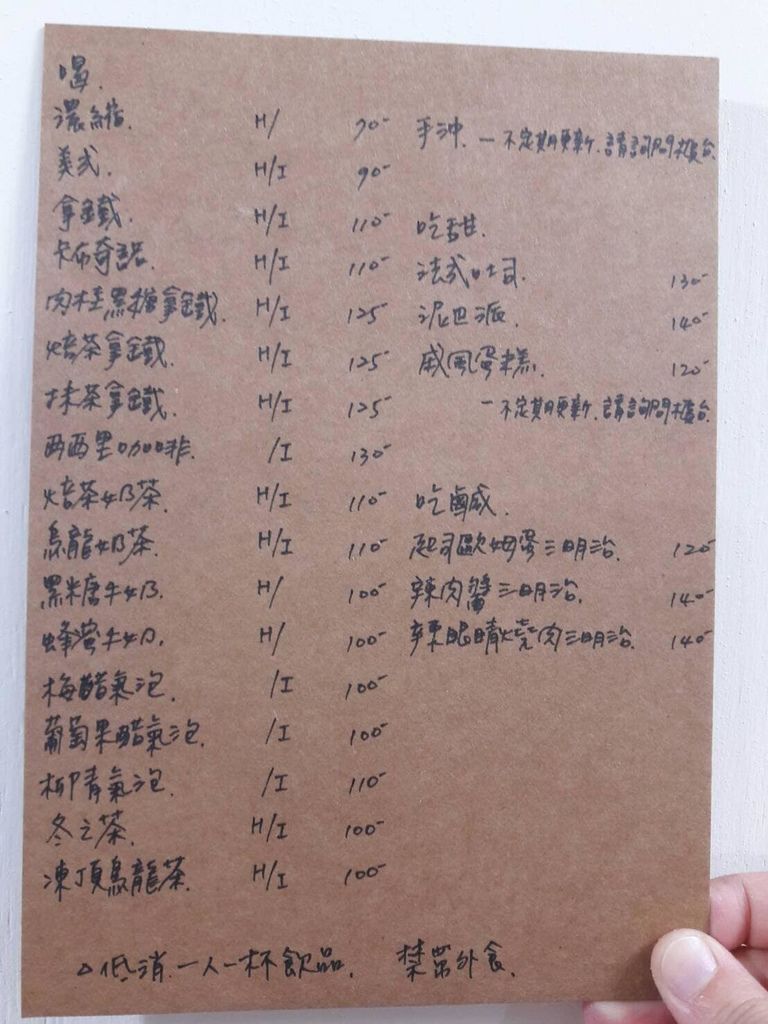 喝.
濃縮. H/ 90-
美式. H/I 90-
拿鐵. H/I 110-
卡布奇諾. H/I 110-
肉桂黑糖拿鐵. H/I 125-
焙茶拿鐵. H/I 125-
抹茶拿鐵. H/I 125-
西西里咖啡. /I 130-
焙茶奶茶. H/I 110-
烏龍奶茶. H/I 110-
黑糖牛奶. H/ 100-
蜂蜜牛奶. H/ 100-
梅醋氣泡. /I 100-
葡萄果醋氣泡. /I 100-
柳青氣泡. /I 110-
冬之茶. H/I 100-
凍頂烏龍茶. H/I 100-
手沖. — 不定期更新.請詢問櫃台.
吃甜.
法式吐司 130-
泥巴派. 140-
戚風蛋糕. 120-
— 不定期更新.請詢問櫃台.
吃鹹.
起司歐姆蛋三明治. 120-
辣肉醬三明治. 140-
辣眼睛燒肉三明治. 140-
△低消一人一杯飲品. 禁帶外食.